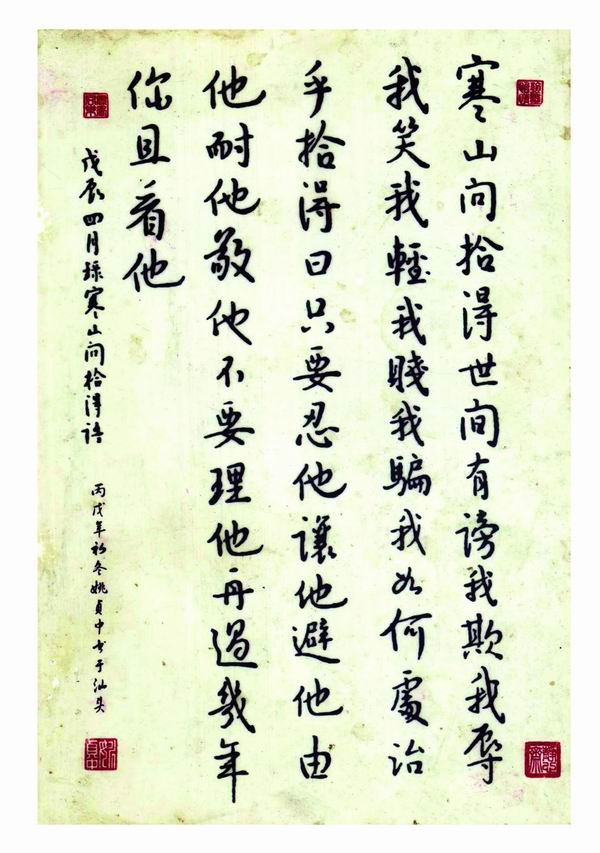 寒山问拾得世间有谤我欺我辱
我笑我輕我賤我騙我如何處治
乎拾得曰只要忍他讓他避他由
他耐他敬他不要理他再過幾年
你且看他
戊辰四月録寒山问拾得語
丙戌年初冬姚貞中书于汕头